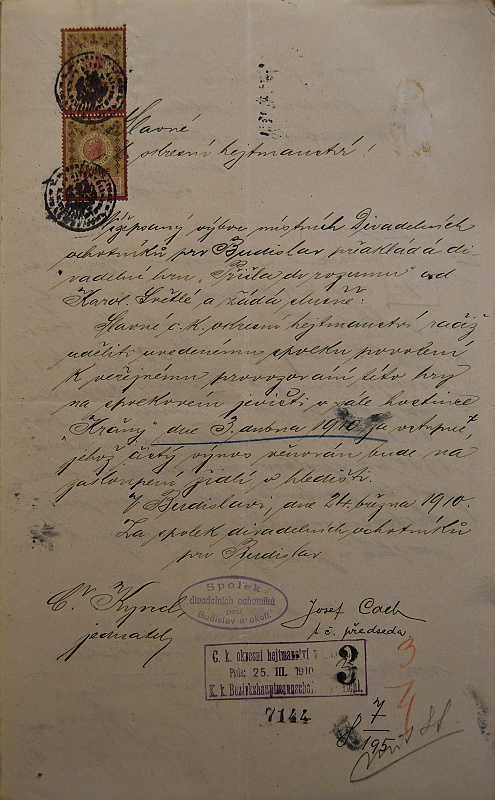 Slavné
okresní hejtmanství!
Nížepsaný výbor místních Divadelních
ochotníků pro Budislav překládá di-
vadelní hru „Přišla do rozumu" od
Karol. Světlé a žádá slušně:
Slavné c. k. okresní hejtmanství račiž
uděliti uvedenému spolku povolení
k veřejnému provozování této hry
na spolkovém jevišti v sále hostince
"Krány" dne 3. dubna 1910 za vstupné,
jehož čistý výnos věnován bude na
zakoupení židlí v hledišti.
V Budislavi, dne 24. března 1910.
Za spolek divadelních ochotníků
pro Budislav
Kyncl,
jednatel
Spolek
divadelních ochotníků
pro
Budislav a okolí.
Josef Cach
t. č. předseda
C. k. okresní hejtmanství
Präs: 25. III. 1910
K. k. Bezirkshauptmannschaft
3
7144
3
4
7
195